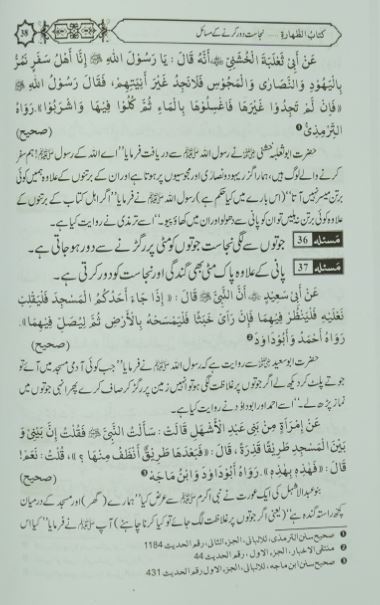 كتاب الطهارة ..... نجاست دور کرنے کے مسائل 38
عَنْ أَبِيْ ثَعْلَبَةَ الْخُشَنِيِّ أَنَّهُ قَالَ : يَا رَسُوْلَ اللهِ ﷺ إِنَّا أَهْلُ سَفَرٍ نَمُرُّ
بِالْيَهُوْدِ وَالنَّصَارَى وَالْمَجُوْسِ فَلَا نَجِدُ غَيْرَ آنِيَتِهِمْ، فَقَالَ رَسُوْلُ اللهِ ﷺ
«فَإِنْ لَمْ تَجِدُوْا غَيْرَهَا فَاغْسِلُوْهَا بِالْمَاءِ ثُمَّ كُلُوْا فِيْهَا وَاشْرَبُوْا». رَوَاهُ
التِّرْمِذِيُّ ❶ (صحيح)
حضرت ابو ثعلبہ خشنی ؓ نے رسول اللہ ﷺ سے دریافت فرمایا ”اے اللہ کے رسول ﷺ! ہم سفر
کرنے والے لوگ ہیں، ہمارا گزر یہود و نصاریٰ اور مجوسیوں پر ہوتا ہے اور ان کے برتنوں کے علاوہ ہمیں کوئی
برتن میسر نہیں آتا“ (اس بارے میں کیا حکم ہے) رسول اللہ ﷺ نے فرمایا ”اگر اہل کتاب کے برتنوں کے
علاوہ کوئی برتن نہ پائیں تو ان کو پانی سے دھو لو اور ان میں کھاؤ پیو۔“ اسے ترمذی نے روایت کیا ہے۔
مسئلہ 36 جوتوں سے لگی نجاست جوتوں کو مٹی پر رگڑنے سے دور ہو جاتی ہے۔
مسئلہ 37 پانی کے علاوہ پاک مٹی بھی گندگی اور نجاست کو دور کرتی ہے۔
عَنْ أَبِيْ سَعِيْدٍ ؓ أَنَّ النَّبِيَّ ﷺ قَالَ : «إِذَا جَاءَ أَحَدُكُمُ الْمَسْجِدَ فَلْيَقْلِبْ
نَعْلَيْهِ فَلْيَنْظُرْ فِيْهِمَا فَإِنْ رَأَى خَبَثًا فَلْيَمْسَحْهُ بِالْأَرْضِ ثُمَّ لِيُصَلِّ فِيْهِمَا».
رَوَاهُ أَحْمَدُ وَأَبُوْدَاوُدَ ❷ (صحيح)
حضرت ابو سعید ؓ سے روایت ہے کہ رسول اللہ ﷺ نے فرمایا ”جب کوئی آدمی مسجد میں آئے تو
جوتے پلٹ کر دیکھ لے اگر جوتوں پر غلاظت لگی ہو تو انہیں زمین پر رگڑ کر صاف کرے پھر انہی جوتوں میں
نماز پڑھ لے۔“ اسے احمد اور ابو داؤد نے روایت کیا ہے۔
عَنْ إِمْرَأَةٍ مِنْ بَنِيْ عَبْدِ الْأَشْهَلِ قَالَتْ : سَأَلْتُ النَّبِيَّ ﷺ فَقُلْتُ إِنَّ بَيْنِيْ وَ
بَيْنَ الْمَسْجِدِ طَرِيْقًا قَذِرَةً، قَالَ : «فَبَعْدَهَا طَرِيْقٌ أَنْظَفُ مِنْهَا ؟»، قُلْتُ : نَعَمْ!
قَالَ : «فَهٰذِهِ بِهٰذِهِ». رَوَاهُ أَبُوْدَاوُدَ وَابْنُ مَاجَه ❸ (صحيح)
بنو عبدالاشہل کی ایک عورت نے نبی اکرم ﷺ سے عرض کیا ”ہمارے (گھر) اور مسجد کے درمیان
کچھ راستہ گندہ ہے“ (یعنی اگر جوتوں پر غلاظت لگ جائے تو کیا کرنا چاہئے) آپ ﷺ نے فرمایا ”کیا اس
❶ صحیح سنن الترمذی، للالبانی، الجزء الثانی، رقم الحدیث 1184
❷ منتقی الاخبار، الجزء الاول، رقم الحدیث 44
❸ صحیح سنن ابن ماجه، للالبانی، الجزء الاول رقم الحدیث 431